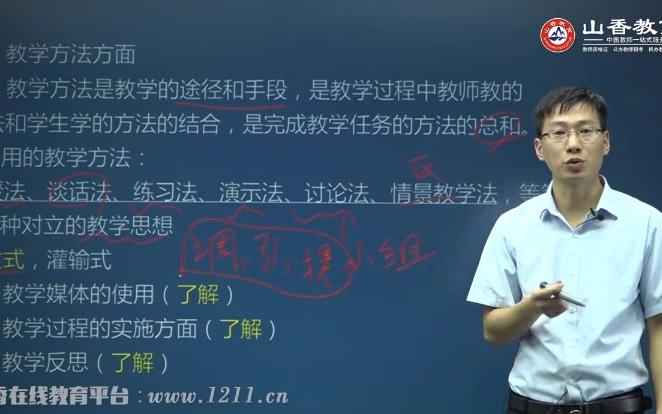 山香教育
中国教师一站式服务
教师资格证 公办教师招考 民办教
教学方法方面
教学方法是教学的途径和手段，是教学过程中教师教的
法和学生学的方法的结合，是完成教学任务的方法的总和。
用的教学方法：
法、谈话法、练习法、演示法、讨论法、情景教学法，等等
种对立的教学思想
式，灌输式
调、引、提、小组
教学媒体的使用（了解）
教学过程的实施方面（了解）
教学反思（了解）
香在线教育平台：www.1211.cn